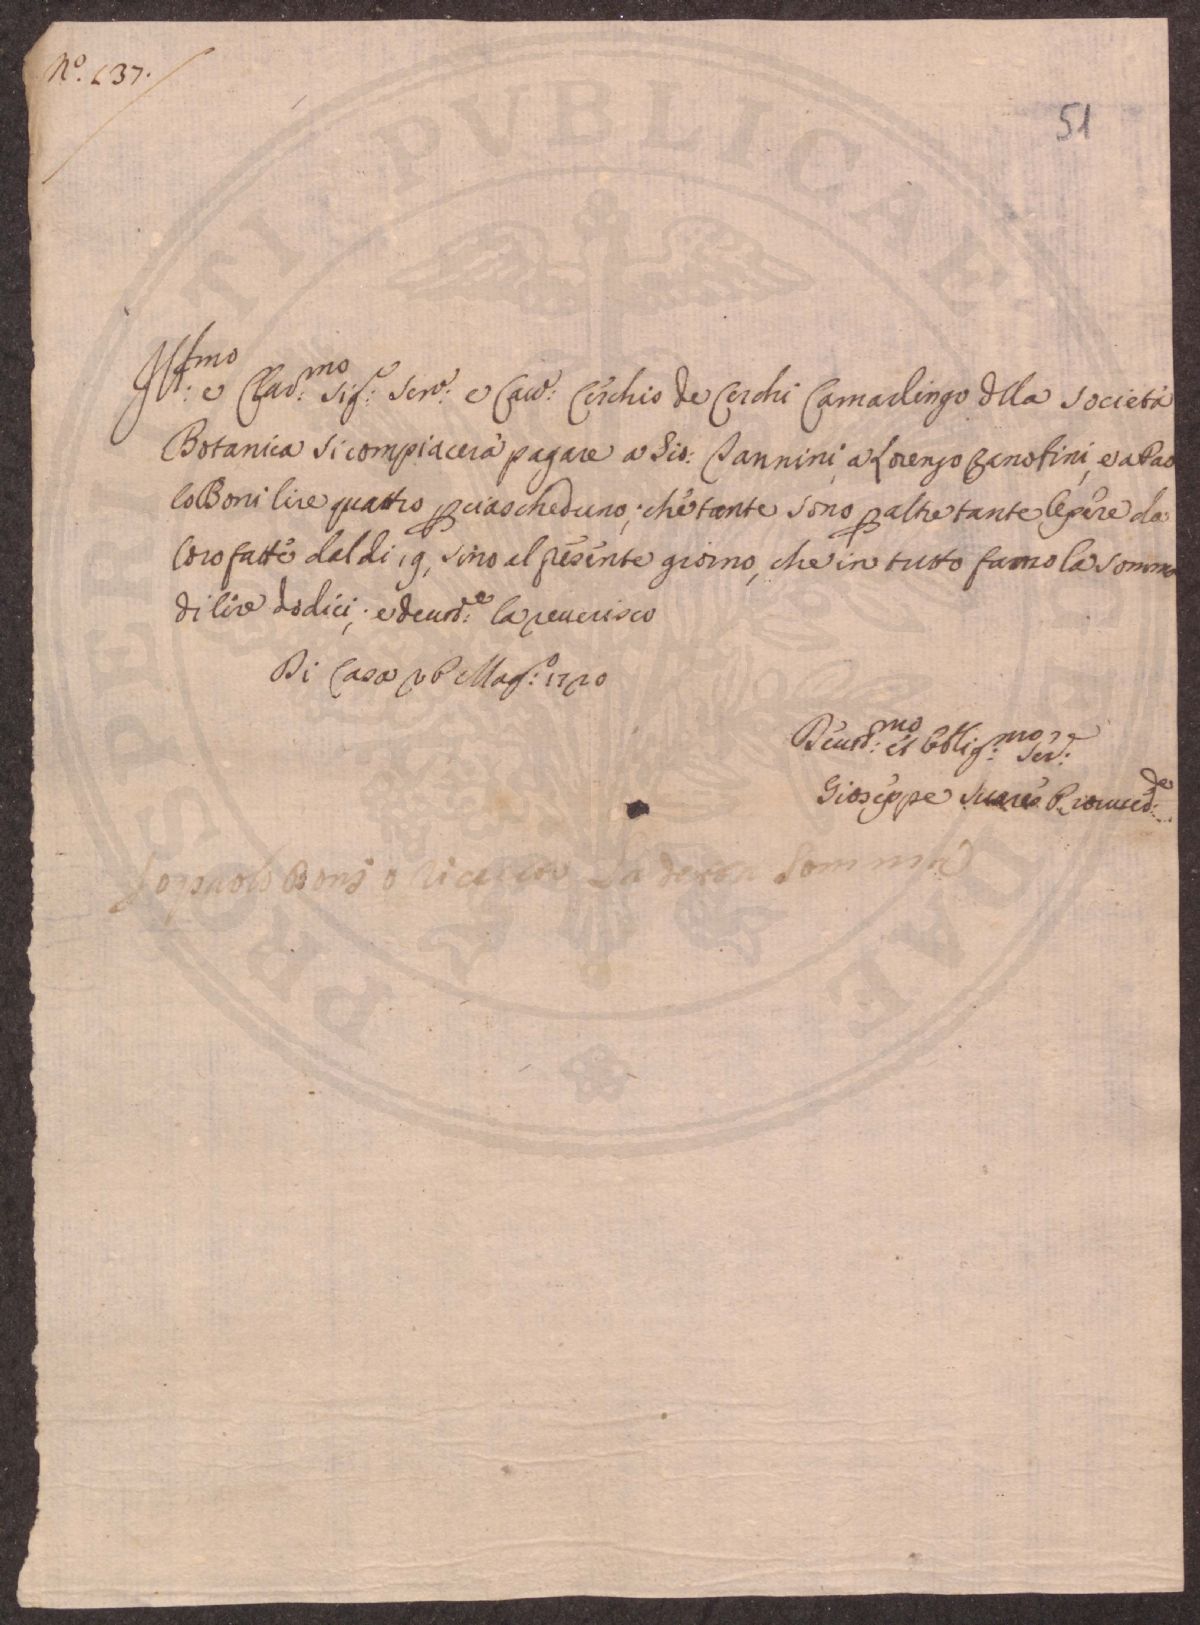 N.º 637.
51
Ill:mo e Clar:mo Sig:e Sen:e e Cav:e Cerchio de Cerchi Camarlingo dlla Società
Botanica si compiacerà pagare a Gio: Vannini, a Lorenzo Zanobini, e a Pao
lo Boni lire quattro p ciascheduno, che tante sono p altretante Opere da
loro fatte dal di 19, sino al presente giorno, che in tutto fanno la somma
di lire dodici, e deuot:e la reuerisco
Di Casa Mag:o 1720
Deuot:mo et Oblig:mo Ser:re
Giuseppe Prouued:re
Io paolo Boni o riceuto La detta Somma